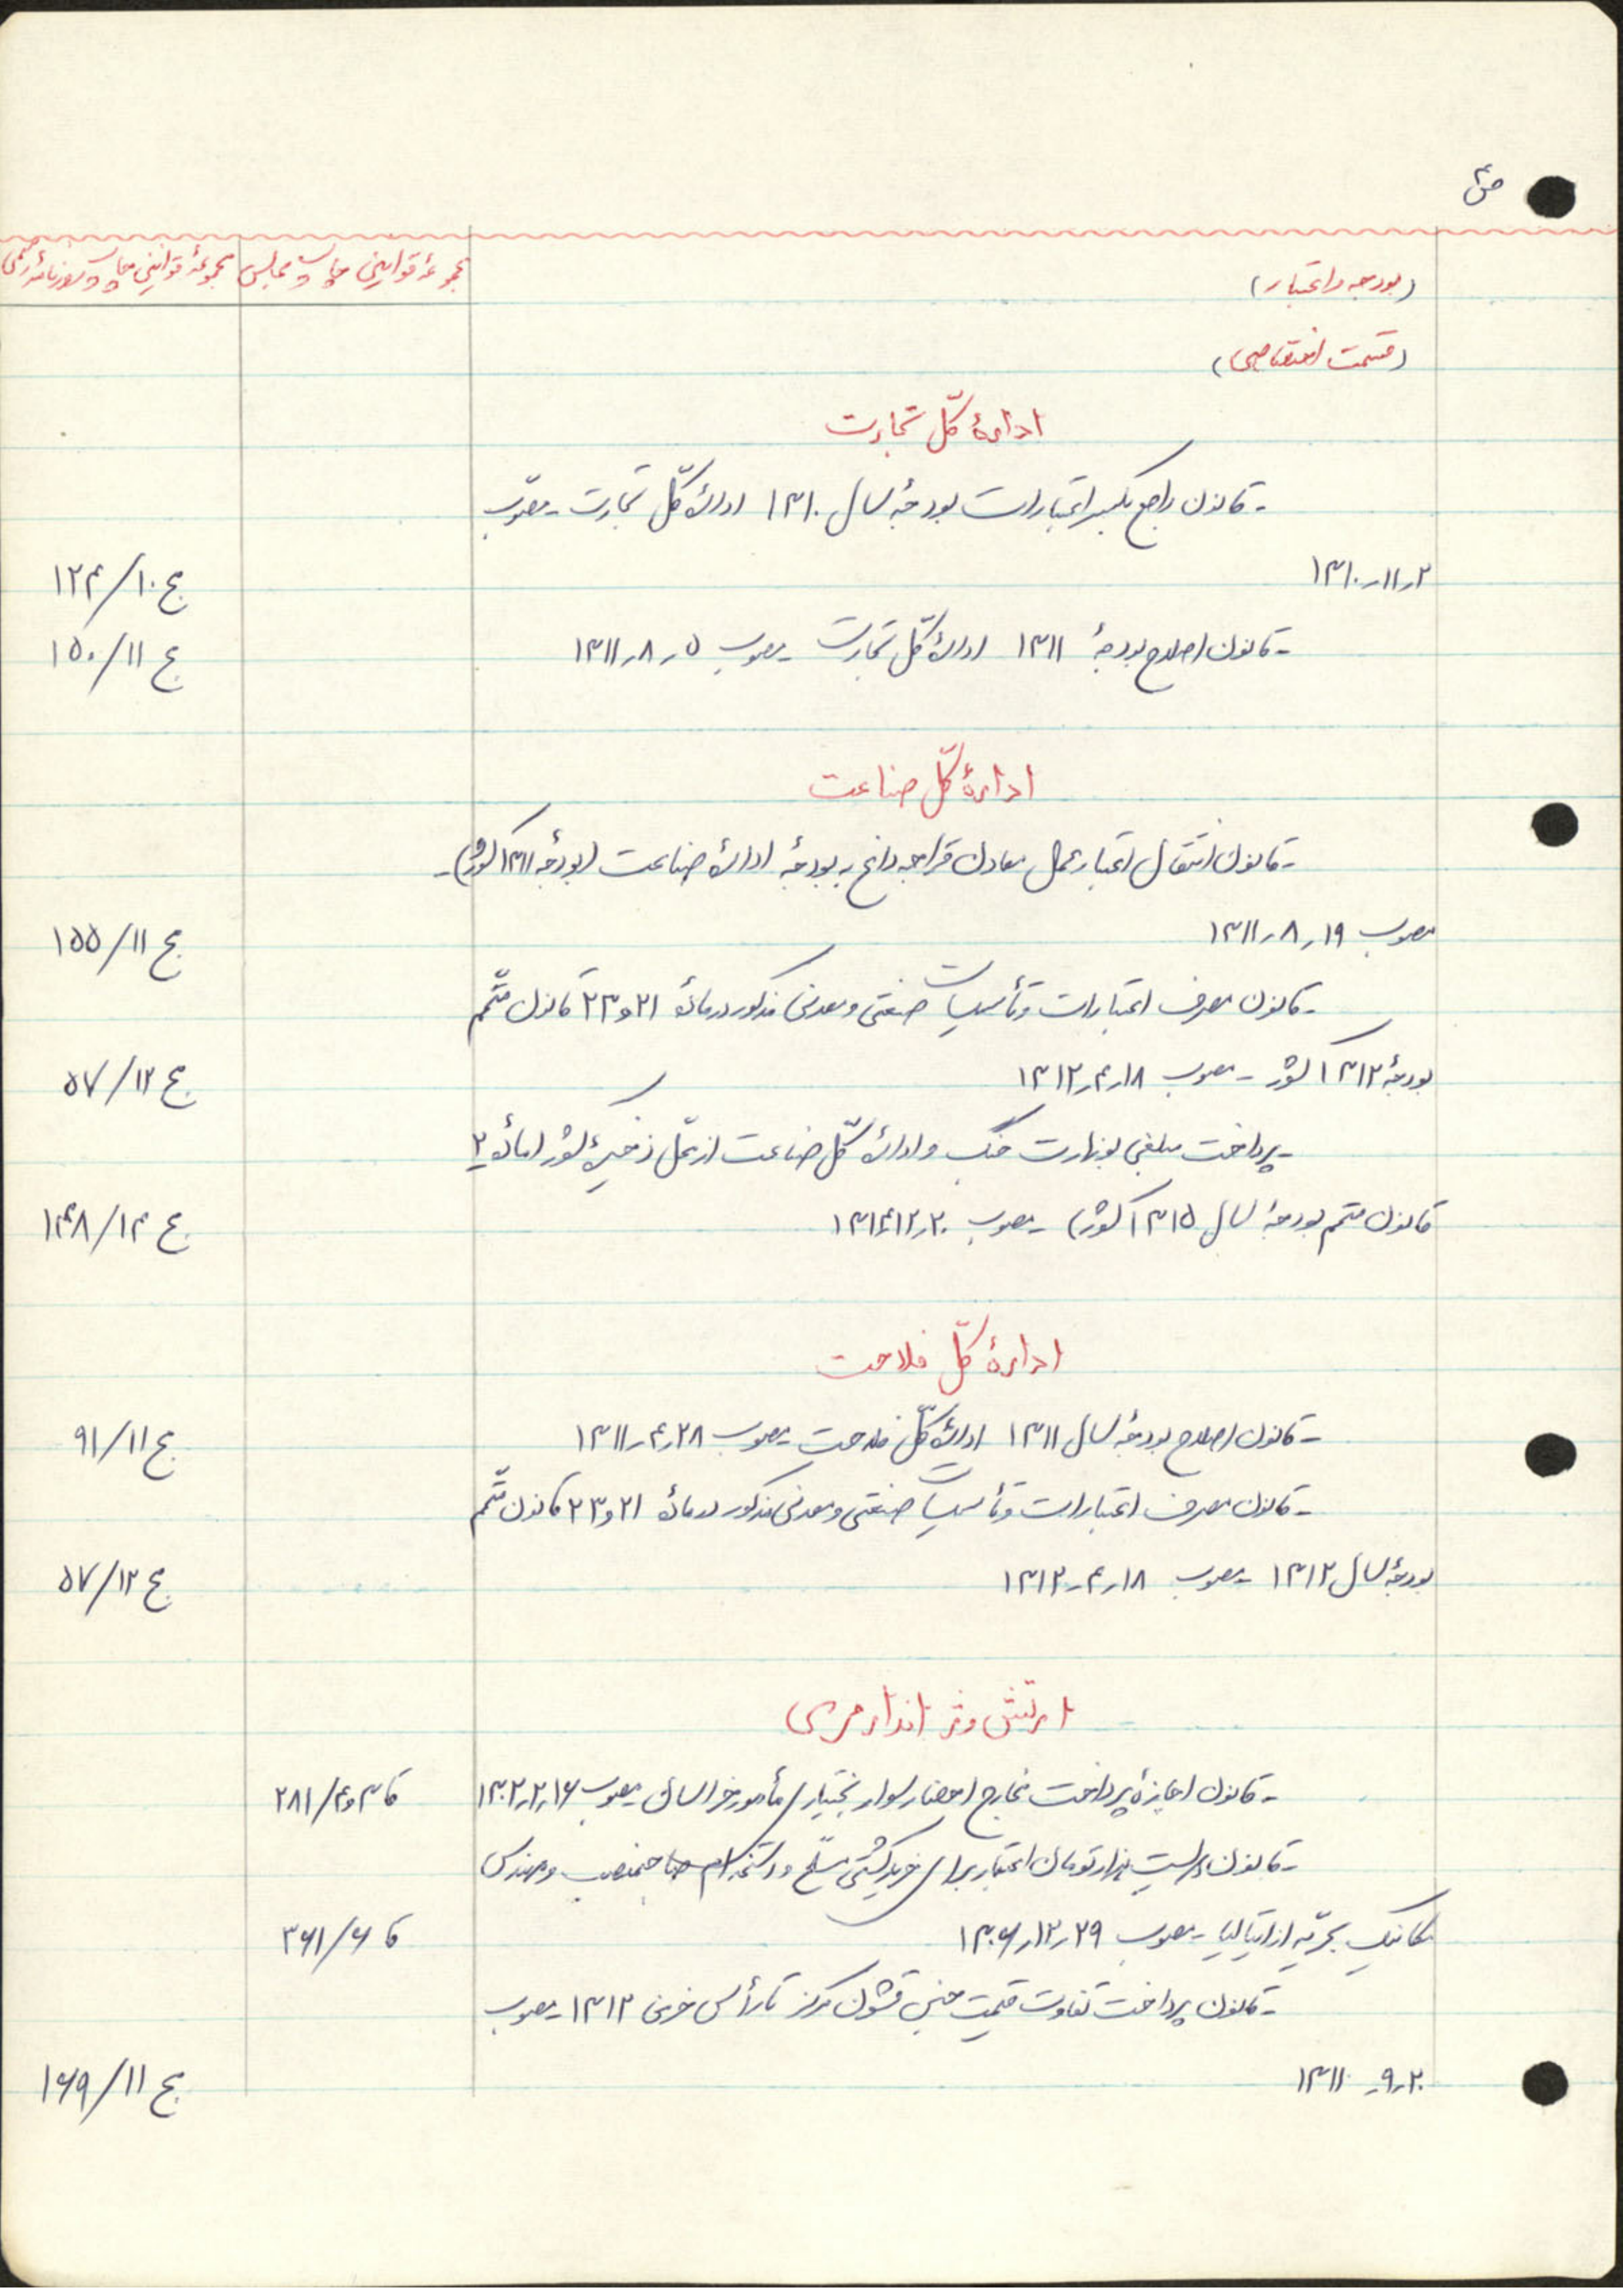 ص ۴
(بودجه و اعتبار) مجموعهٔ قوانین چاپ مجلس مجموعهٔ قوانین چاپ روزنامهٔ رسمی
(قسمت اختصاصی)
ادارهٔ کلّ تجارت
- قانون راجع بکسر اعتبارات بودجهٔ سال ۱۳۱۰ ادارهٔ کلّ تجارت - مصوّب
۲ر۱۱ر۱۳۱۰ ج ۱۰/۱۲۴
- قانون اصلاح بودجهٔ ۱۳۱۱ ادارهٔ کلّ تجارت - مصوب ۵ر۸ر۱۳۱۱ ج ۱۱/۱۵۰
ادارهٔ کلّ صناعت
- قانون انتقال اعتبار عمل معادن قراجه داغ به بودجهٔ ادارهٔ صناعت (بودجه ۱۳۱۱ کشور) -
مصوب ۱۹ر۸ر۱۳۱۱ ج ۱۱/۱۵۵
- قانون مصرف اعتبارات و تأسیسات صنعتی و معدنی مذکور در مادهٔ ۲۱ و ۲۳ قانون متمّم
بودجهٔ ۱۳۱۲ کشور - مصوب ۱۸ر۴ر۱۳۱۲ ج ۱۲/۵۷
- پرداخت مبلغی بوزارت جنگ و ادارهٔ کلّ صناعت از محلّ ذخیرهٔ کشور (مادهٔ ۲
قانون متمم بودجهٔ سال ۱۳۱۵ کشور) - مصوب ۲۰ر۱۲ر۱۳۱۴ ج ۱۴/۱۴۸
ادارهٔ کلّ فلاحت
- قانون اصلاح بودجهٔ سال ۱۳۱۱ ادارهٔ کلّ فلاحت - مصوب ۲۸ر۴ر۱۳۱۱ ج ۱۱/۹۱
- قانون مصرف اعتبارات و تأسیسات صنعتی و معدنی مذکور در مادهٔ ۲۱ و ۲۳ قانون متمّم
بودجهٔ سال ۱۳۱۲ - مصوب ۱۸ر۴ر۱۳۱۲ ج ۱۲/۵۷
ارتش و ژاندارمری
- قانون اجازهٔ پرداخت مخارج احضار سوار بختیاری مأمور خراسان - مصوب ۱۶ر۲ر۱۳۰۲ قا ۳ و ۴/۲۸۱
- قانون دویست هزار تومان اعتبار برای خرید کشتی مسلّح و استخدام صاحبمنصب و مهندس
مکانیک بحرّیه از ایتالیا - مصوب ۲۹ر۱۲ر۱۳۰۶ قا ۶/۳۶۱
- قانون پرداخت تفاوت قیمت جنسی قشون مرکز تا رأس خرمن ۱۳۱۲ - مصوب
۲۰ر۹ر۱۳۱۱ ج ۱۱/۱۶۹